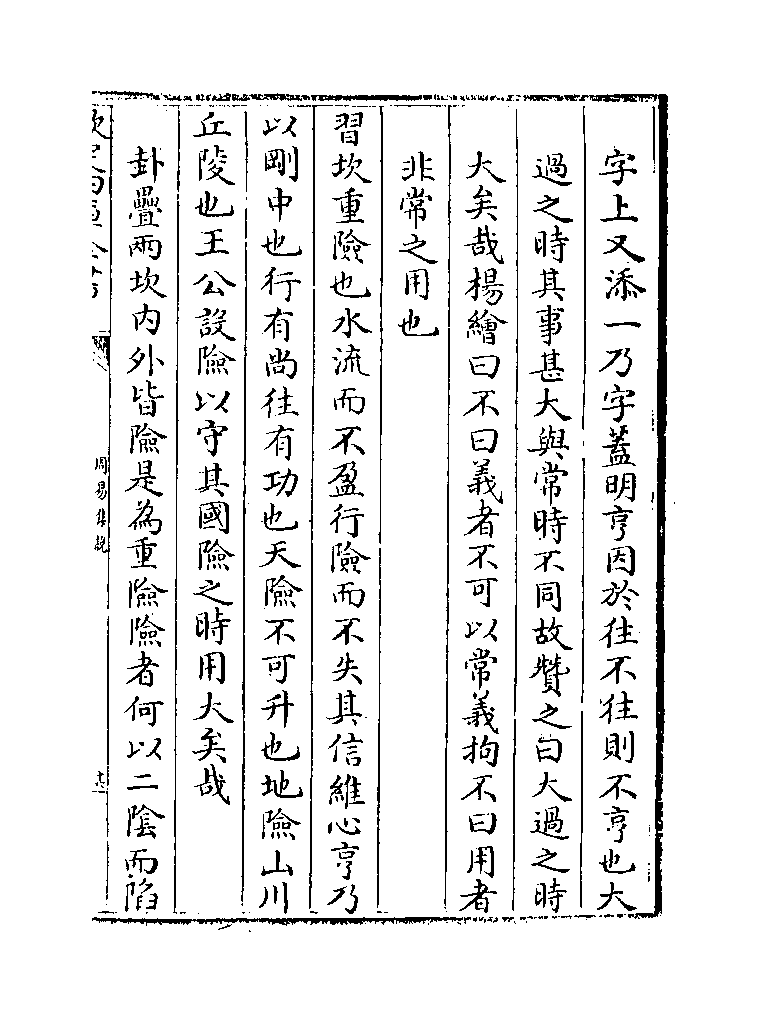 字上又添一乃字蓋明亨因於往不往則不亨也大
過之時其事甚大與常時不同故贊之曰大過之時
大矣哉揚繪曰不曰義者不可以常義拘不曰用者
非常之用也
習坎重險也水流而不盈行險而不失其信維心亨乃
以剛中也行有尚往有功也天險不可升也地險山川
丘陵也王公設險以守其國險之時用大矣哉
卦疊兩坎内外皆險是為重險險者何以二陰而陷
周易集說